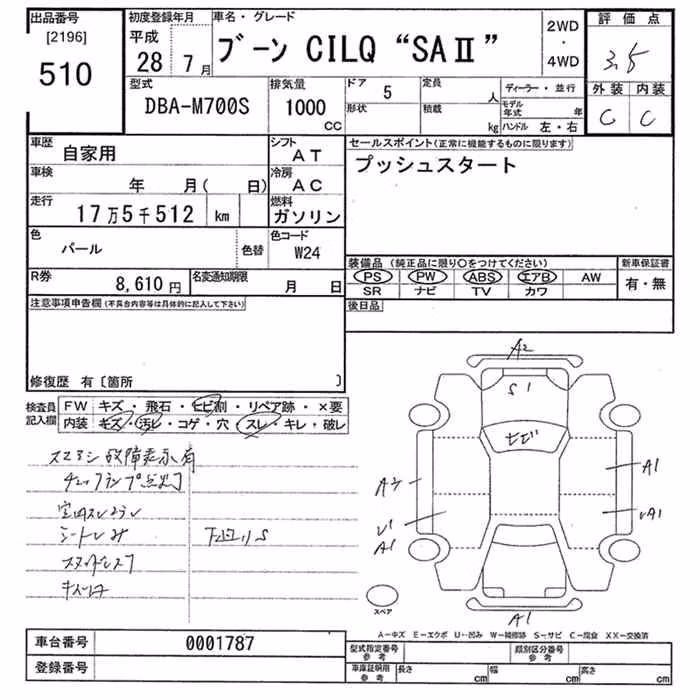 出品番号 初度登録年月 車名・グレード 2WD・4WD 評価点
[2196] 510 平成 28 7月 ブーン CILQ “SAⅡ” 3.5
型式 排気量 ドア 5 定員 人 ディーラー・並行 外装 内装
DBA-M700S 1000 CC 形状 積載 kg モデル年式 年 ハンドル 左・右 C C
車歴 自家用 シフト AT セールスポイント(正常に機能するものに限ります)
車検 年 月( 日) 冷房 AC プッシュスタート
走行 17万5千512 km 燃料 ガソリン
色 パール 色替 色コード W24
装備品 (純正品に限り○をつけてください) 新車保証書
R券 8,610円 名変通知期限 月 日 PS PW ABS エアB AW 有・無
SR ナビ TV カワ
注意事項申告欄(不具合内容等は具体的に記入して下さい) 後日品
修復歴 有〔箇所 〕
検査員記入欄 FW キズ・飛石・ヒビ割・リペア跡・×要
内装 キズ・汚レ・コゲ・穴・スレ・キレ・破レ
故障表示有
チェックランプ点灯
シートシミ 下回りS
スタッドレス
A2
S1
ヒビ
A1
A1
A1
A1
スペア
A—キズ E—エクボ U—凹み W—補修跡 S—サビ C—腐食 XX—交換済
車台番号 0001787 型式指定番号 参考 類別区分番号 参考
登録番号 車庫証明用 参考 長さ cm 幅 cm 高さ cm